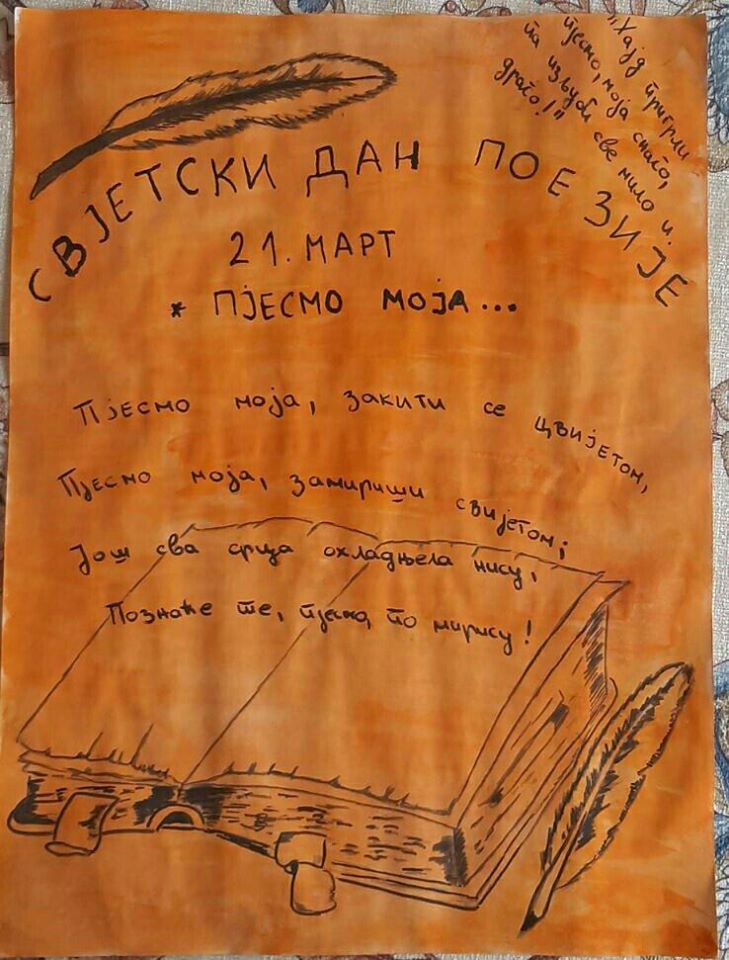 „Хајд пригрли
пјесмо, моја снаго,
па изљуби све мило и
драго!"
СВЈЕТСКИ ДАН ПОЕЗИЈЕ
21. МАРТ
* ПЈЕСМО МОЈА...
Пјесмо моја, закити се цвијетом,
Пјесмо моја, замириши свијетом;
Још сва срца охладњела нису,
Познаће те, пјесмо, по мирису!